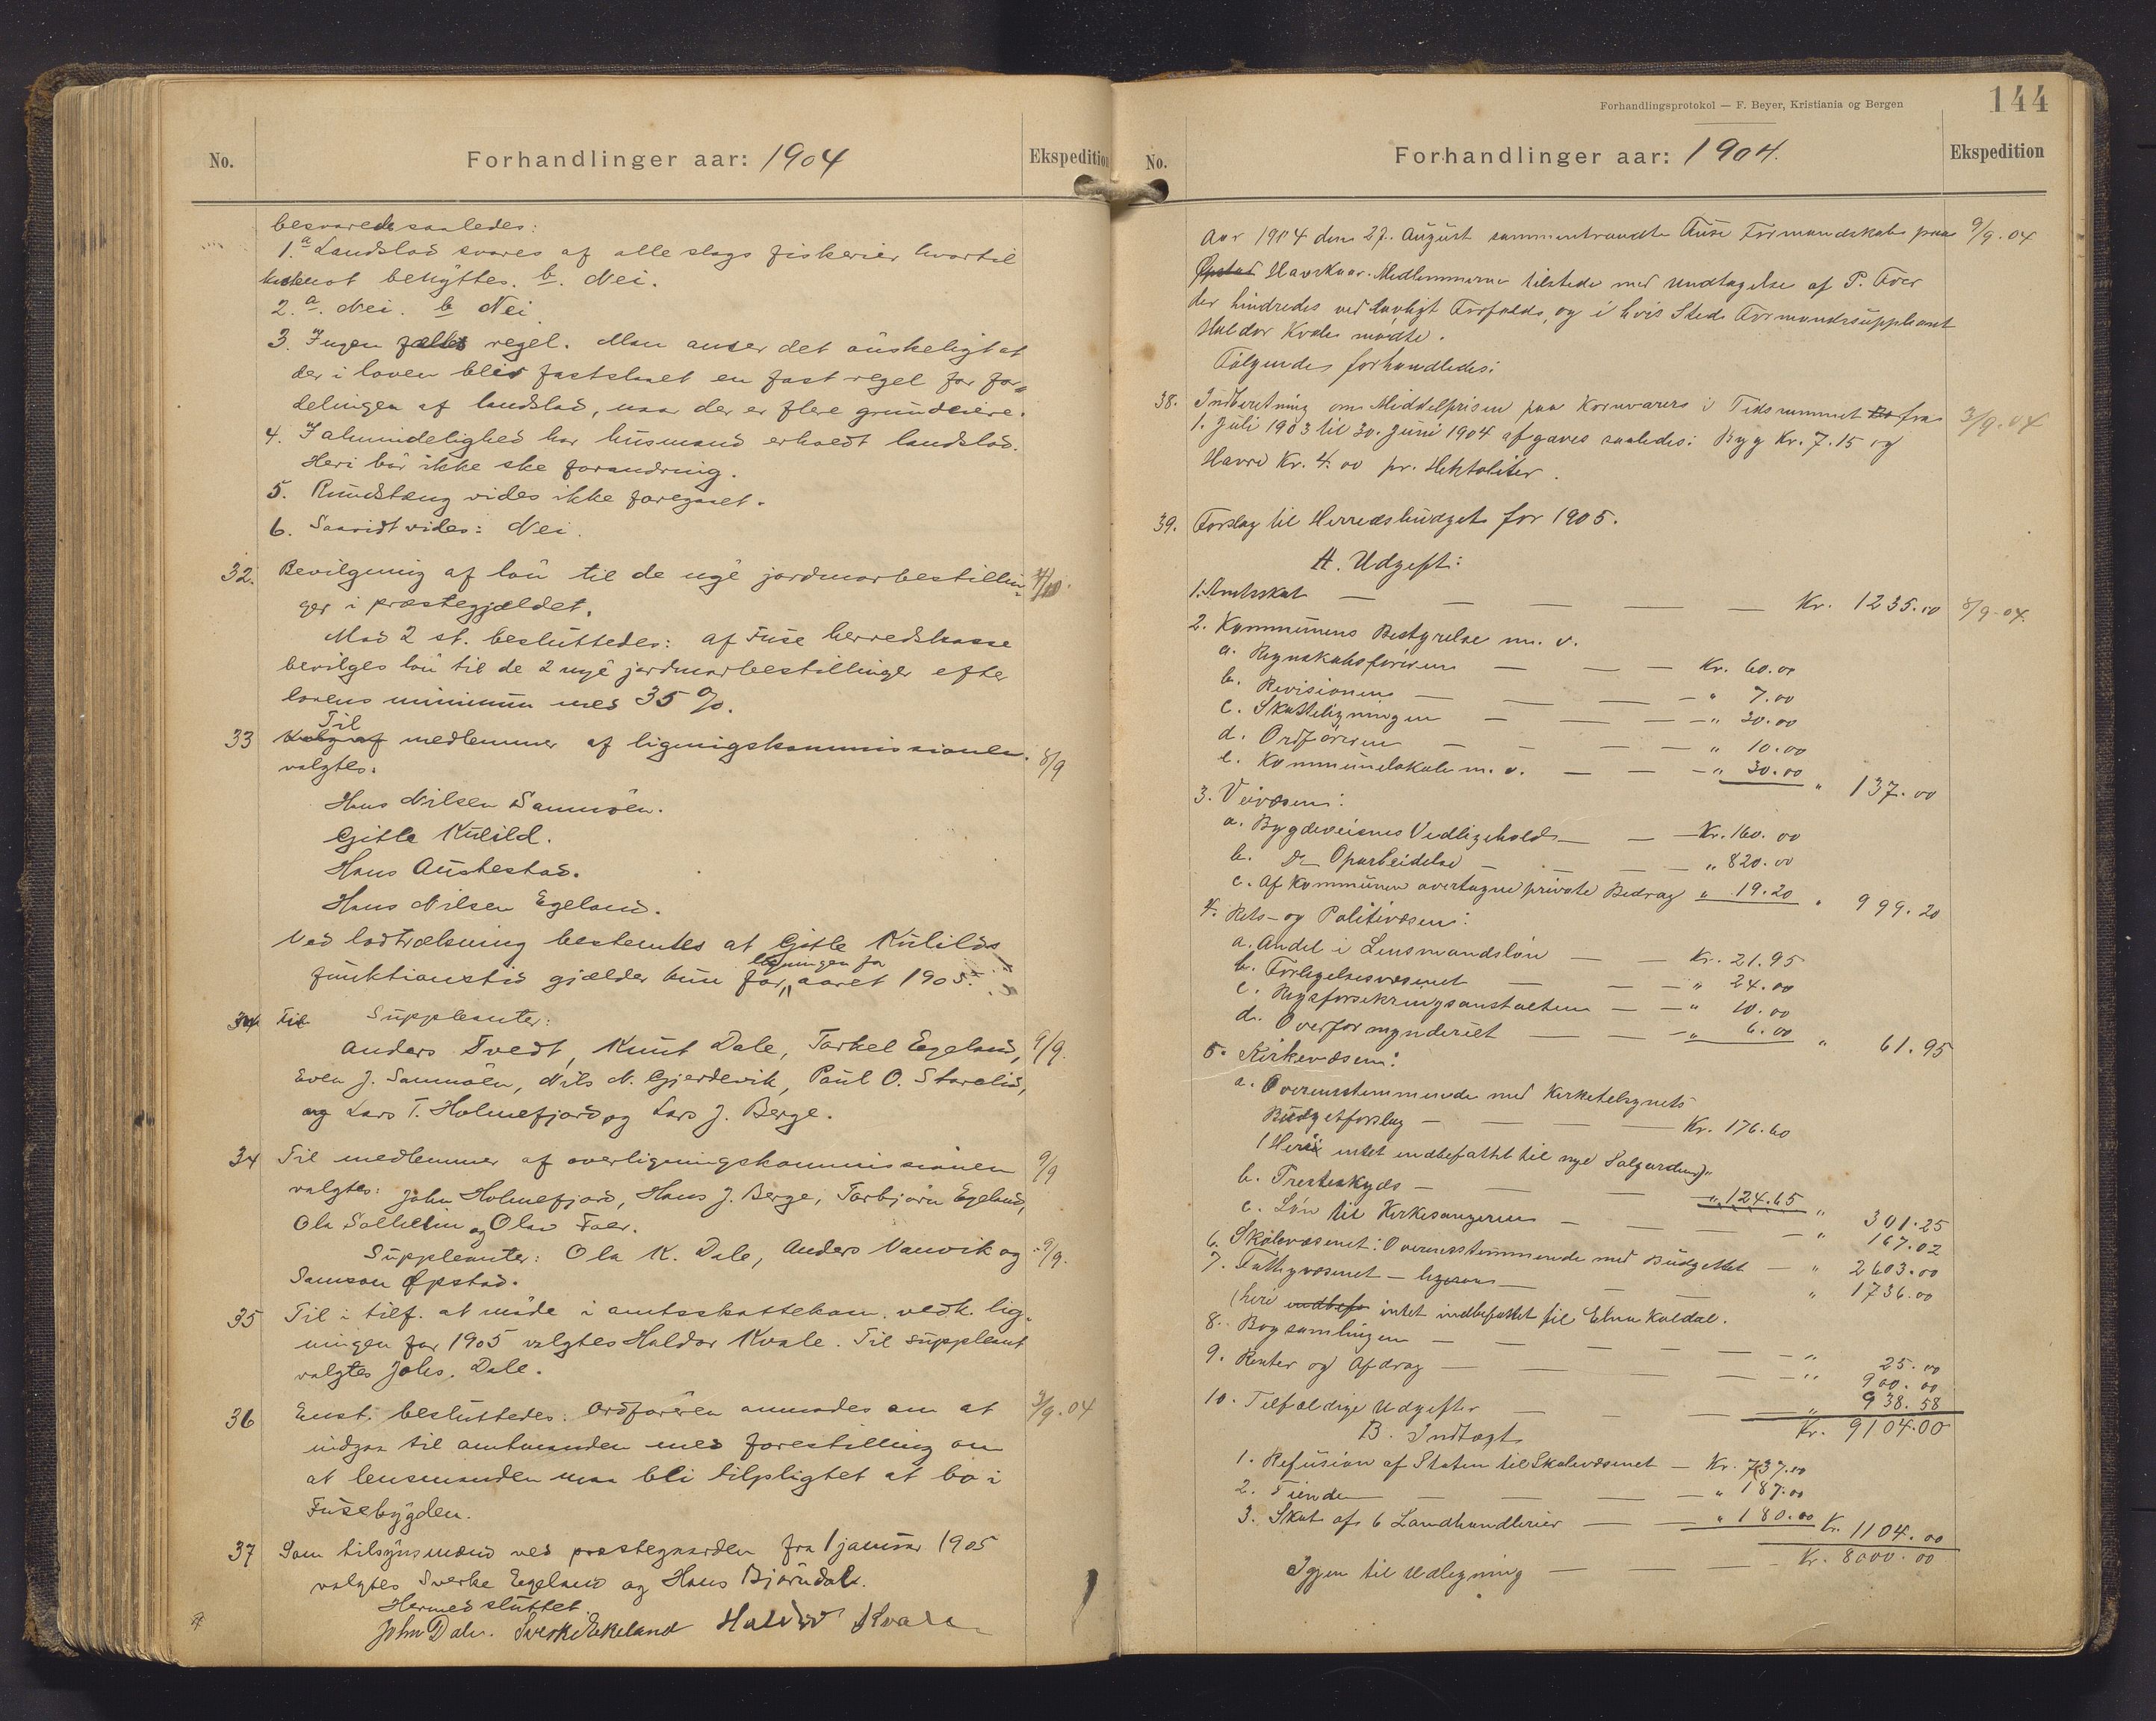 No.
Forhandlinger aar: 1904
Ekspedition
besvaredes saaledes:
1. a Landslod svares af alle slags fiskerier hvortil
landnot benyttes. b. Nei.
2. a. Nei. b Nei.
3. Ingen regel. Man anser det önskeligt at
der i loven blir fastslaaet en fast regel for for-
delingen af landslod, naar der er flere grundeiere.
4. I almindelighed har husmand erholdt landslod.
Heri bör ikke ske forandring.
5. Rundstæng vides ikke foregaaet.
6. Saavidt vides: Nei.
32. Bevilgning af lön til de nye jordmorbestillin-
ger i præstegjældet.
Mod 2 st. besluttedes: af Fuse herredskasse
bevilges lön til de 2 nye jordmorbestillinger efter
lovens minimum med 35 %.
33 Til
Valg af medlemmer af ligningskommissionen 8/9
valgtes:
Hans Nilsen Samnöen.
Gitle Kulild.
Hans Austestad.
Hans Nilsen Egeland.
Ved lodtrækning bestemtes at Gitle Kulilds
funktionstid gjælder kun for ligningen for aaret 1905.
34 Til Suppleanter:
Anders Tvedt, Knut Dale, Torkel Egeland, 9/9.
Even J. Samnöen, Nils N. Gjerdevik, Paul O. Storelid,
og Lars T. Holmefjord og Lars J. Berge.
34 Til medlemmer af overligningskommissionen 9/9
valgtes: John Holmefjord, Hans J. Berge, Torbjörn Egeland,
Ola Solheim og Olav Foer.
Suppleanter: Ola K. Dale, Anders Vinvik og 9/9.
Samson Öpstad.
35 Til i tilf. at möde i amtsskattekom. vedk. lig-
ningen for 1905 valgtes Haldor Kvale. Til suppleant
valgtes Johs. Dale.
36 Enst. besluttedes: Ordföreren anmodes om at 9/9.04
indgaa til amtmanden med forestilling om
at lensmanden maa bli tilpligtet at bo i
Fusebygden.
37 Som tilsynsmænd ved præstegaarden fra 1 januar 1905
valgtes Sverke Egeland og Hans Björndal.
Hermed sluttet.
John Dale. Sverke Ekeland Haldor Kvale
Forhandlingsprotokol — F. Beyer, Kristiania og Bergen
144
No.
Forhandlinger aar: 1904.
Ekspedition
Aar 1904 den 27. August sammentraadte Fuse Formandskab paa 9/9.04
Öpstad Havskaar. Medlemmerne tilstede med Undtagelse af P. Foer
der hindredes ved lovligt Forfald, og i hvis Sted Formandssuppleant
Haldor Kvale mödte.
Fölgende forhandledes:
38. Indberetning om Middelprisen paa Kornvarer i Tidsrummet fra 3/9.04
1. Juli 1903 til 30. Juni 1904 afgaves saaledes: Byg Kr. 7.15 og
Havre Kr. 4.00 pr. Hektoliter.
39. Forslag til Herredsbudget for 1905.
A. Udgift:
1. Amtsskat — — — — — Kr. 1235.00 8/9-04.
2. Kommunens Bestyrelse m. v.
a. Regnskabsföreren — — — Kr. 60.00
b. Revisionen — — — " 7.00
c. Skatteligningen — — — " 30.00
d. Ordföreren — — — " 10.00
e. Kommunelokale m. v. — — — " 30.00 " 137.00
3. Veivæsen:
a. Bygdeveienes Vedligehold — — Kr. 160.00
b. Do Oparbeidelse — — — " 820.00
c. Af Kommunen overtagne private Bidrag " 19.20 " 999.20
4. Rets- og Politivæsen:
a. Andel i Lensmandslön — — Kr. 21.95
b. Forligelsesvæsenet — — " 24.00
c. Rigsforsikringsanstalten — — " 10.00
d. Overformynderiet — — " 6.00 " 61.95
5. Kirkevæsen:
a. Overensstemmende med Kirketilsynets
Budgetforslag — — — Kr. 176.60
(Heri intet indbefattet til nye Salgarden)
b. Presteskyds — — " 124.65 " 301.25
c. Lön til Kirkesangeren — — — " 167.02
6. Skolevæsenet: Overensstemmende med Budgettet — " 2603.00
7. Fattigvæsenet — ligesaa — — — " 1736.00
(heri indbefa intet indbefattet til Elna Koldal.
8. Bogsamlingen — — — — — " 25.00
9. Renter og Afdrag — — — — " 900.00
10. Tilfældige Udgifter — — — " 938.58
Kr. 9104.00
B. Indtægt
1. Refusion af Staten til Skolevæsenet — Kr. 737.00
2. Tiende — — — — " 187.00
3. Skat af 6 Landhandlerier — — " 180.00 Kr. 1104.00
Igjen til Udligning — — — Kr. 8000.00